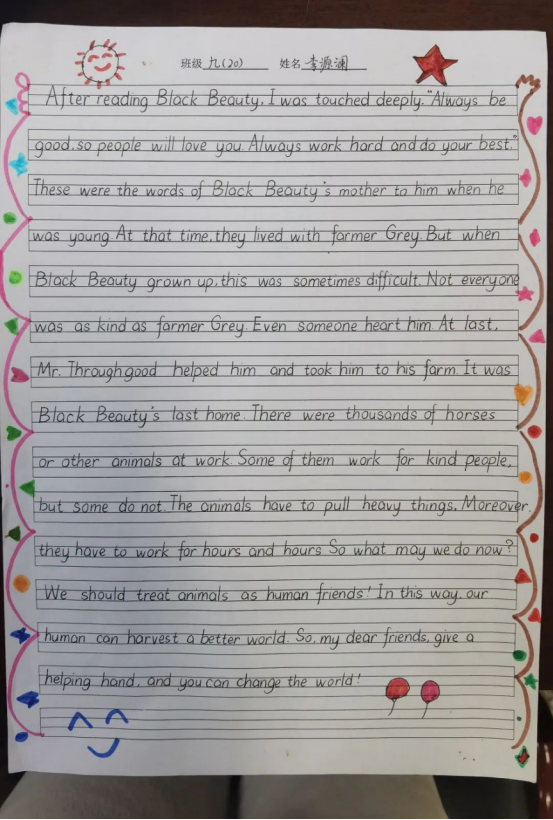 班级 九(20) 姓名 李源澜
After reading Black Beauty, I was touched deeply. "Always be
good, so people will love you. Always work hard and do your best."
These were the words of Black Beauty's mother to him when he
was young. At that time, they lived with farmer Grey. But when
Black Beauty grown up, this was sometimes difficult. Not everyone
was as kind as farmer Grey. Even someone heart him. At last,
Mr. Throughgood helped him and took him to his farm. It was
Black Beauty's last home. There were thousands of horses
or other animals at work. Some of them work for kind people,
but some do not. The animals have to pull heavy things. Moreover,
they have to work for hours and hours So what may we do now?
We should treat animals as human friends! In this way, our
human can harvest a better world. So, my dear friends, give a
helping hand, and you can change the world!